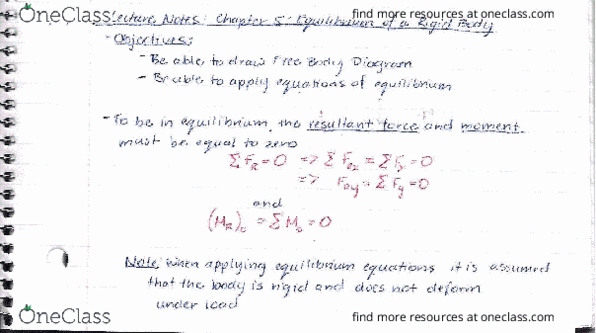 OneClass
find more resources at oneclass.com
Lecture Notes: Chapter 5: Equilibrium of a Rigid Body
- Objectives:
- Be able to draw Free Body Diagram
- Be able to apply equations of equilibrium
- To be in equilibrium, the resultant force and moment
must be equal to zero
ΣF_R = 0 => ΣF_Rx = ΣF_x = 0
=> F_Ry = ΣF_y = 0
and
(M_R)_o = ΣM_o = 0
Note: when applying equilibrium equations it is assumed
that the body is rigid and does not deform
under load
OneClass
find more resources at oneclass.com